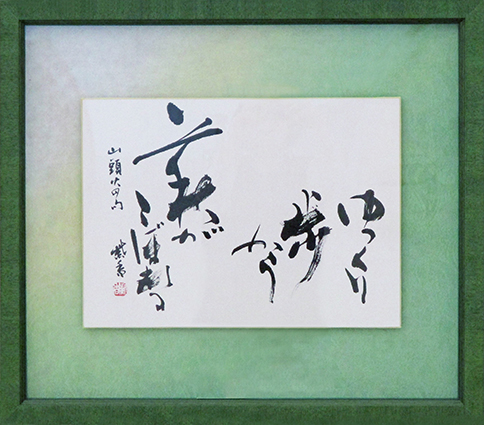 ゆつくり
歩
かう
萩が
こぼれる
山頭火の句